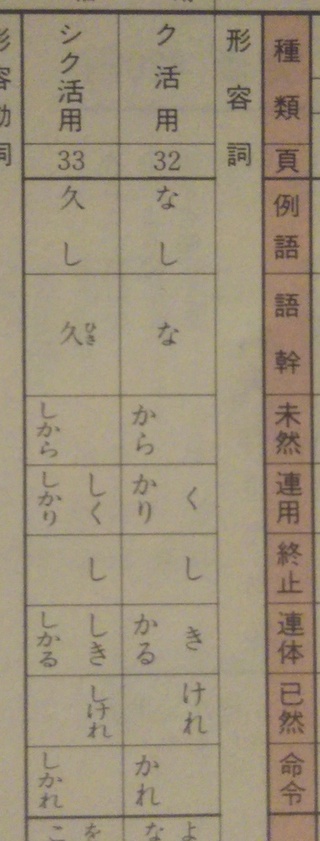 種類 頁 例語 語幹 未然 連用 終止 連体 已然 命令
形容詞
ク活用 32 なし な から く かり し き かる けれ かれ
シク活用 33 久し 久ひさ しから しく しかり し しき しかる しけれ しかれ
形容動詞